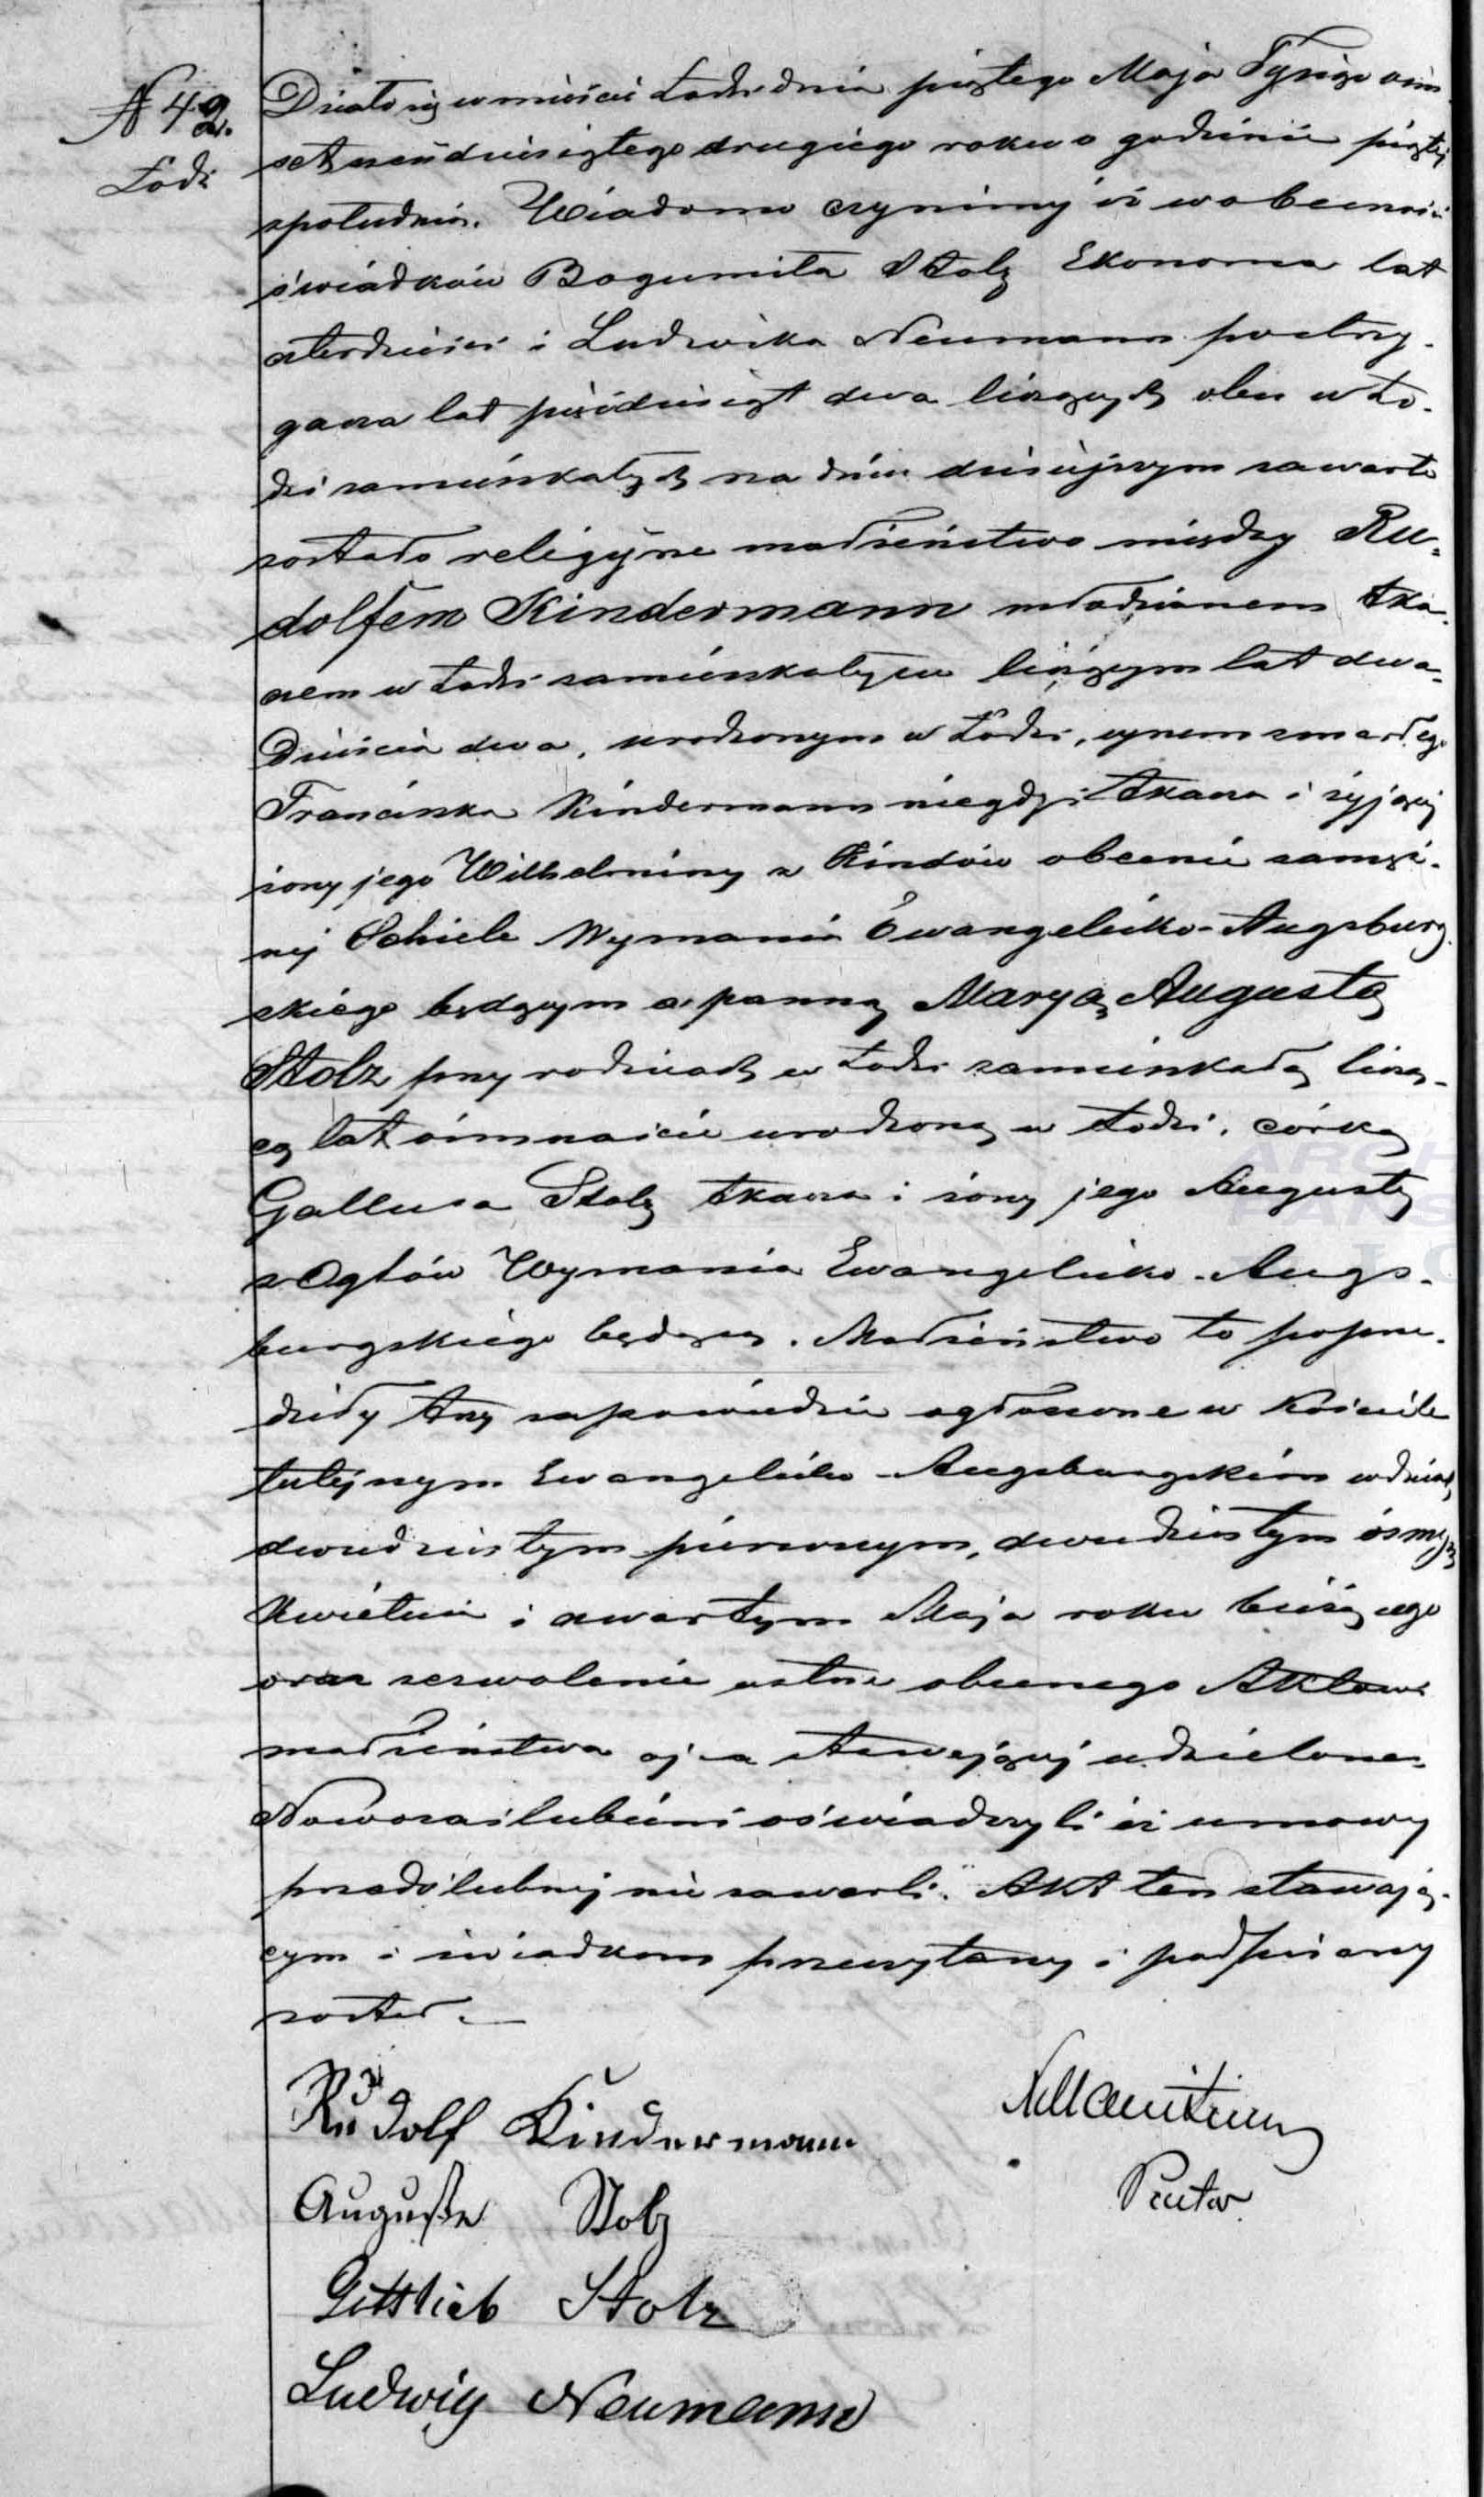 N 42.
Łodz
Działo się w mieście Łodzi dnia piątego Maja Tysiąc ośm
set sześćdziesiątego drugiego roku o godzinie piątej
z południa. Wiadomo czynimy iż w obecności
świadków Bogumiła Stolz Ekonoma lat
czterdzieści i Ludwika Neumann postrzy-
gacza lat pięćdziesiąt dwa liczących obu w Ło-
dzi zamieszkałych na dniu dzisiejszym zawarte
zostało religijne małżeństwo między Ru-
dolfem Kindermann młodzianem tka-
czem w Łodzi zamieszkałym liczącym lat dwa-
dzieścia dwa, urodzonym w Łodzi, synem zmarłego
Franciszka Kindermann niegdyś tkacza i żyjącej
żony jego Wilhelminy z Kindów obecnie zamęż-
nej Schiele Wyznania Ewangelicko-Augsburg
skiego będącym a panną Maryą Augustą
Stolz przy rodzicach w Łodzi zamieszkałą liczą-
cą lat ośmnaście urodzoną w Łodzi, córką
Gallusa Stolz tkacza i żony jego Augusty
z Ogłów Wyznania Ewangelicko-Augs-
burgskiego będącą. Małżeństwo to poprze-
dziły trzy zapowiedzie ogłoszone w Kościele
tutejszym Ewangelicko-Augsburgskim w dniach
dwudziestym pierwszym, dwudziestym ósmym
Kwietnia i czwartym Maja roku bieżącego
oraz zezwolenie ustne obecnego Aktowi
małżeństwa ojca stawającej udzielone.
Nowozaślubieni oświadczyli iż umowy
przedślubnej nie zawarli. Akt ten stawają-
cym i świadkom przeczytany i podpisany
został.
Rudolf Kindermann
Auguste Stolz
Gottlieb Stolz
Ludwig Neumann
Pastor